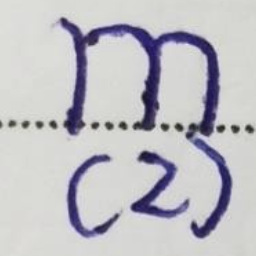 m
(2)